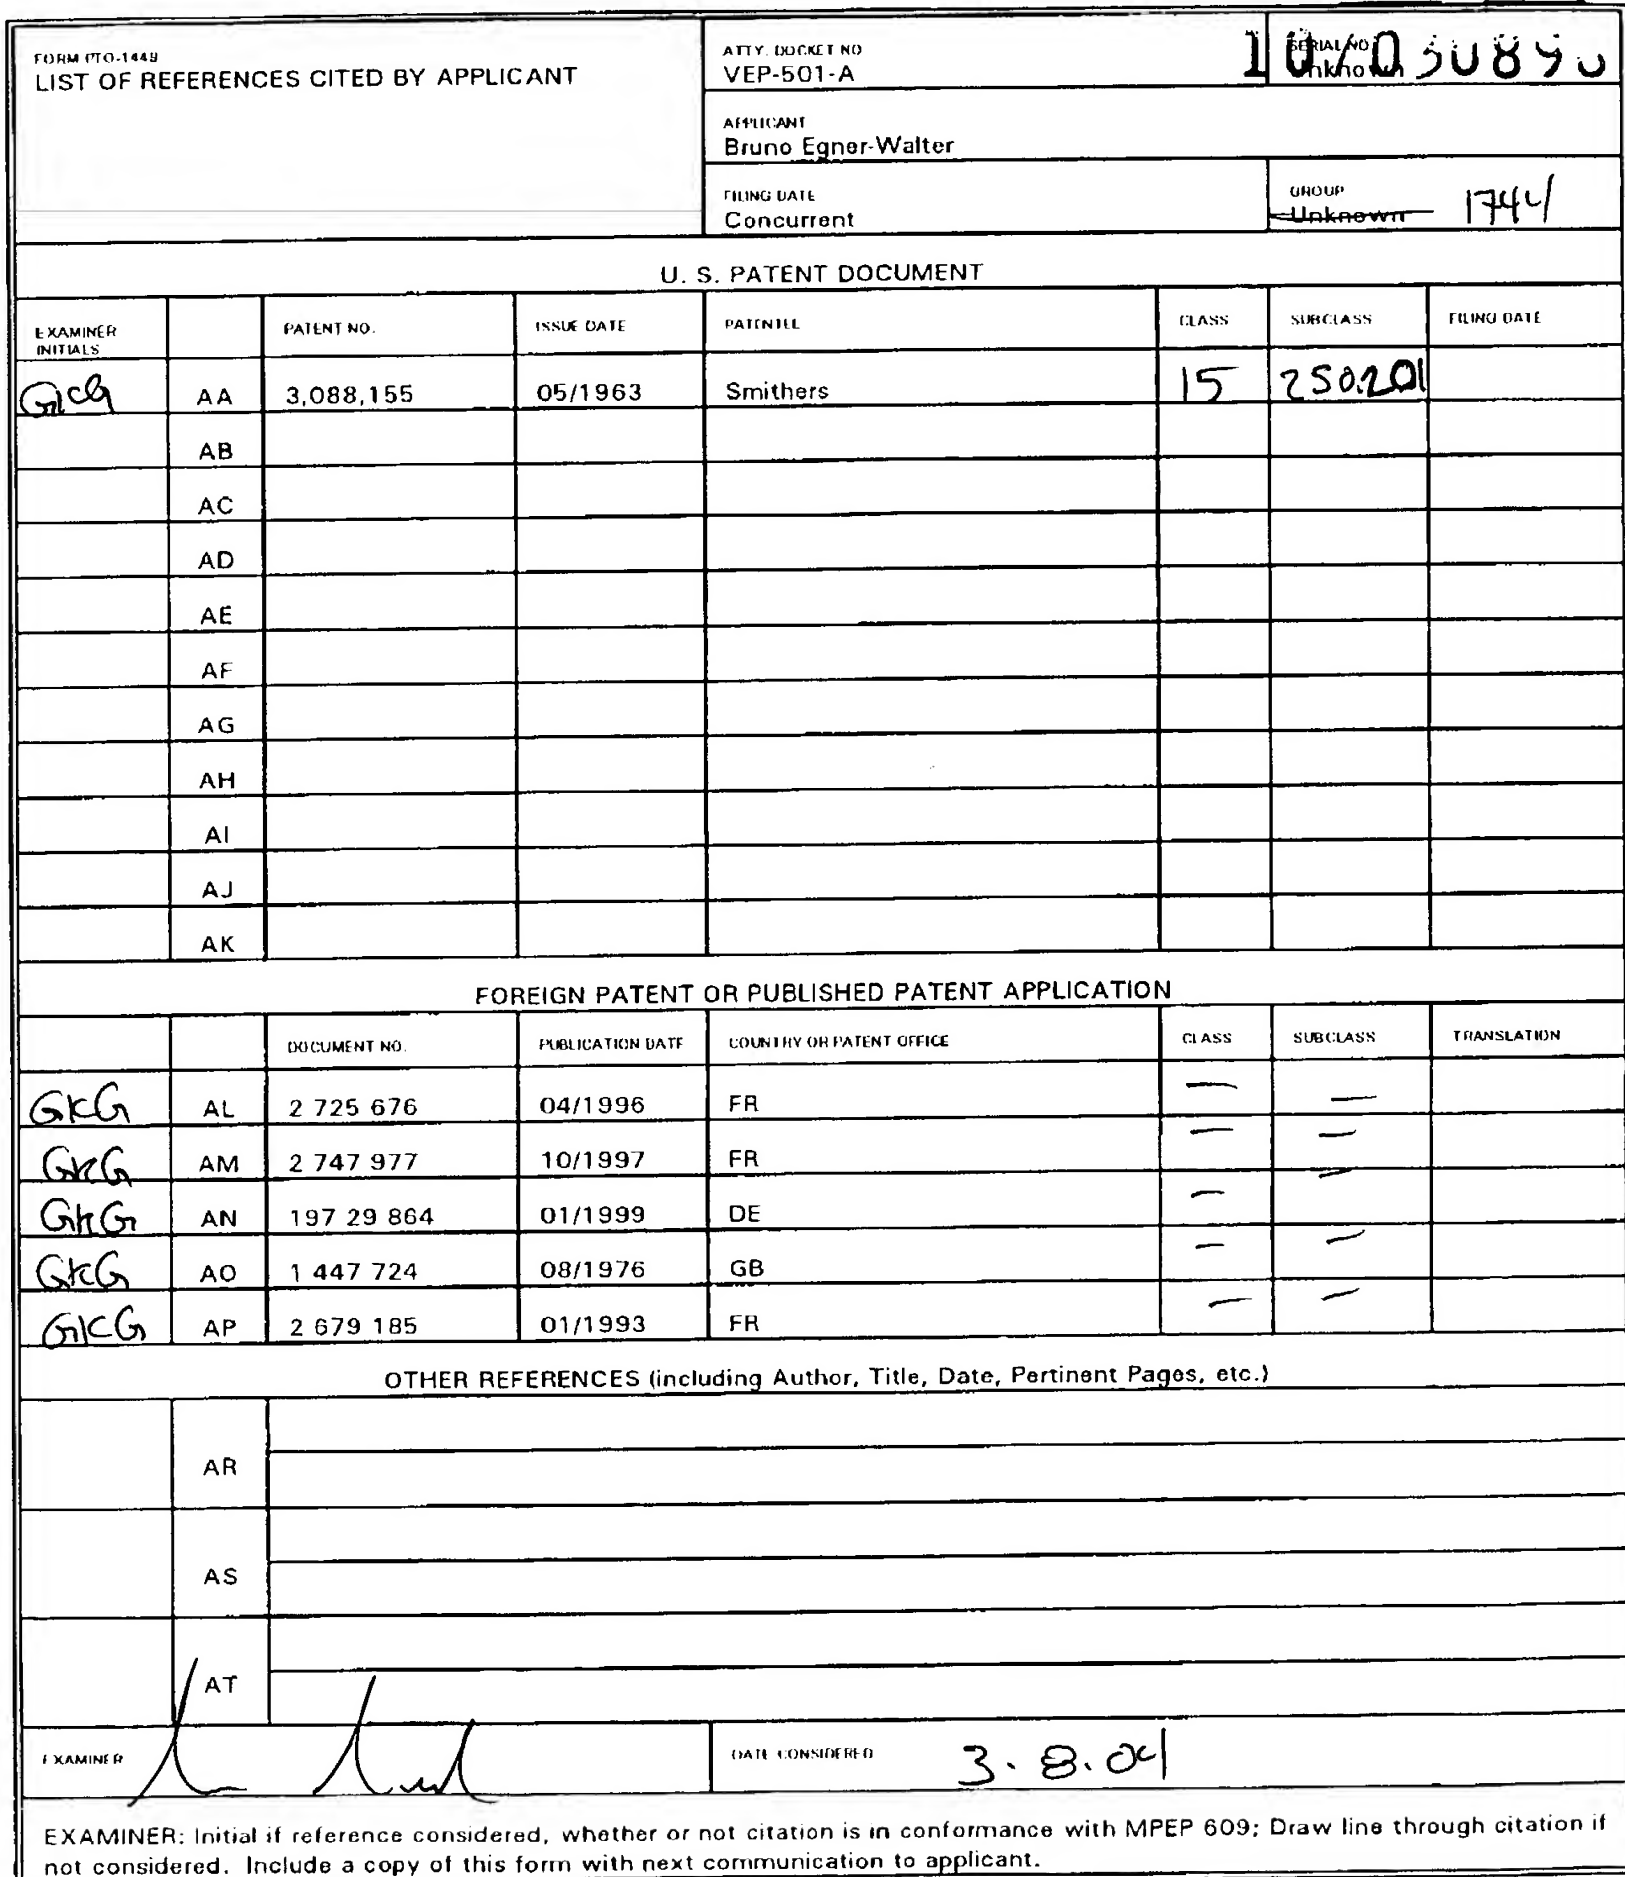 FORM PTO-1449
LIST OF REFERENCES CITED BY APPLICANT
ATTY. DOCKET NO
VEP-501-A
SERIAL NO
Unknown
APPLICANT
Bruno Egner-Walter
FILING DATE
Concurrent
GROUP
Unknown 1744
U. S. PATENT DOCUMENT
EXAMINER INITIALS PATENT NO. ISSUE DATE PATENTEE CLASS SUBCLASS FILING DATE
GKG AA 3,088,155 05/1963 Smithers 15 250.201
AB
AC
AD
AE
AF
AG
AH
AI
AJ
AK
FOREIGN PATENT OR PUBLISHED PATENT APPLICATION
DOCUMENT NO. PUBLICATION DATE COUNTRY OR PATENT OFFICE CLASS SUBCLASS TRANSLATION
GKG AL 2 725 676 04/1996 FR — —
GKG AM 2 747 977 10/1997 FR — —
GKG AN 197 29 864 01/1999 DE — —
GKG AO 1 447 724 08/1976 GB — —
GKG AP 2 679 185 01/1993 FR — —
OTHER REFERENCES (including Author, Title, Date, Pertinent Pages, etc.)
AR
AS
AT
EXAMINER
DATE CONSIDERED 3.8.04
EXAMINER: Initial if reference considered, whether or not citation is in conformance with MPEP 609; Draw line through citation if
not considered. Include a copy of this form with next communication to applicant.